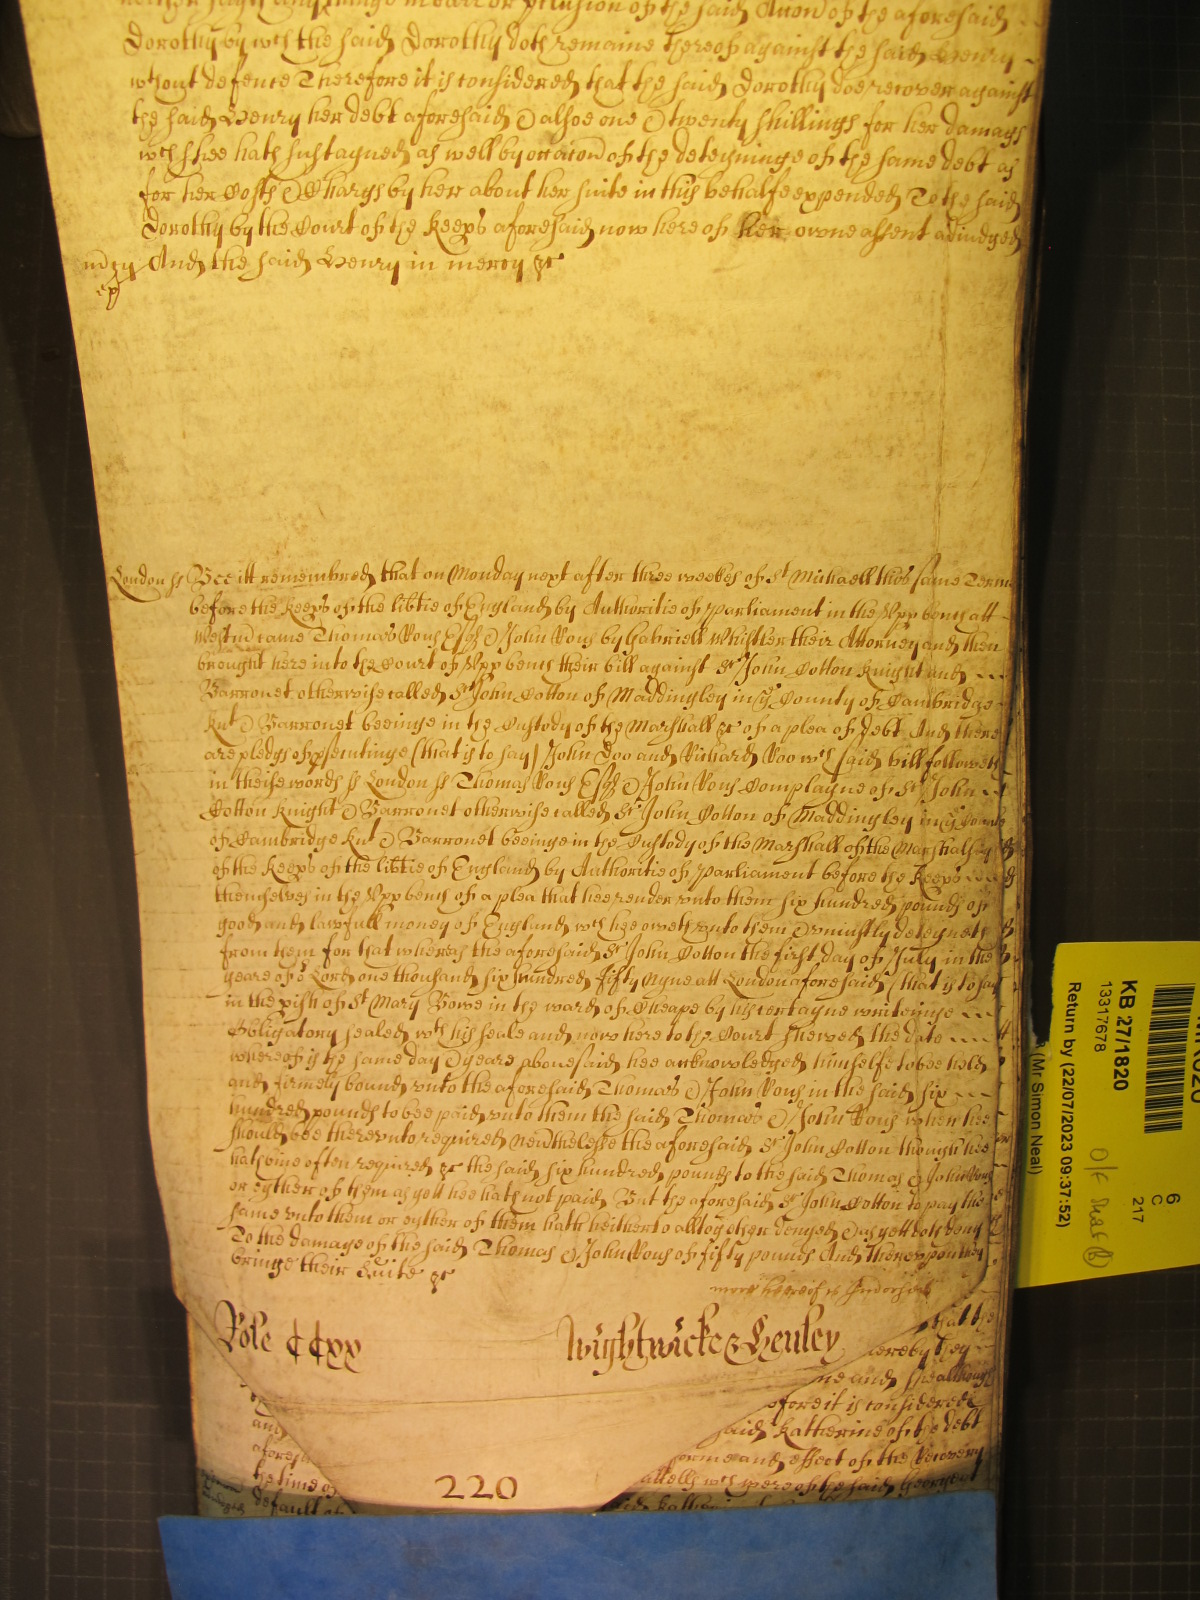 neither sayes any thinge in barr or p'clusion of the said Accon of the aforesaid
Dorothy by wch the said Dorothy doth remaine thereof against the said Henry
wthout defence Therefore it is considered that the said Dorothy doe recover against
the said Henry her debt aforesaid & alsoe one & twenty shillings for her damags
wch shee hath sustayned as well by occacon of the deteyninge of the same debt as
for her Costs & Chargs by her about her suite in this behalfe expended To the said
Dorothy by the Court of the Keeps aforesaid now here of her owne assent adiudged
And the said Henry in mercy &c
London ss Bee itt remembred that on Monday next after three weekes of St Michaell this same Terme
before the Keeps of the libtie of England by Authoritie of Parliament in the Upp bench att
Westm came Thomas Rous Esqr & John Rous by Gabriell Whistler their Attorney and then
brought here into the Court of Upp bench their bill against Sr John Cotton Knight and
Barronet otherwise called Sr John Cotton of Maddingley in ye County of Cambridge
Knt & Barronet beeinge in the Custody of the Marshall &c of a plea of debt And there
are pledgs of psentinge (that is to say) John Doo and Richard Roo wch said bill followeth
in theise words ss London ss Thomas Rous Esqr & John Rous Complayne of Sr John
Cotton Knight & Barronet otherwise called Sr John Cotton of Maddingley in ye County
of Cambridge Knt & Barronet beeinge in the Custody of the Marshall of the Marshalsey
of the Keeps of the libtie of England by Authoritie of Parliament before the Keeps
themselves in the Upp bench of a plea that hee render unto them six hundred pounds of
good and lawfull money of England wch hee oweth unto them & uniustly deteyneth
from them for that whereas the aforesaid Sr John Cotton the first day of July in the
yeare of or Lord one thousand six hundred fifty nyne att London aforesaid (that is to say
in the pish of St Mary Bowe in the ward of Cheape by his certayne writeinge
Obligatory sealed wth his seale and now here to the Court shewed the date
whereof is the same day & yeare abovesaid hee acknowledged himselfe to bee held
and firmely bound unto the aforesaid Thomas & John Rous in the said six
hundred pounds to bee paid unto them the said Thomas & John Rous when hee
should bee thereunto required Neuthelesse the aforesaid Sr John Cotton though hee
hath bine often required &c the said six hundred pounds to the said Thomas & John Rous
or eyther of them as yett hee hath not paid But the aforesaid Sr John Cotton to pay the
same unto them or eyther of them hath heitherto altogether denyed & as yett doth deny
To the damage of the said Thomas & John Rous of fifty pounds And thereupon they
bringe their Suite &c
more hereof is Indorsed
Role CCxx Wightwicke & Henley
that the
whereby they
and although
fore it is considered
and said Katherine of the debt
aforesd forme and effect of the Recovery
the time of attells wch were of the said George
default of
220
KB 27/1820
13317678
Return by (22/07/2023 09:37:52)
(Mr Simon Neal)
6
C
217